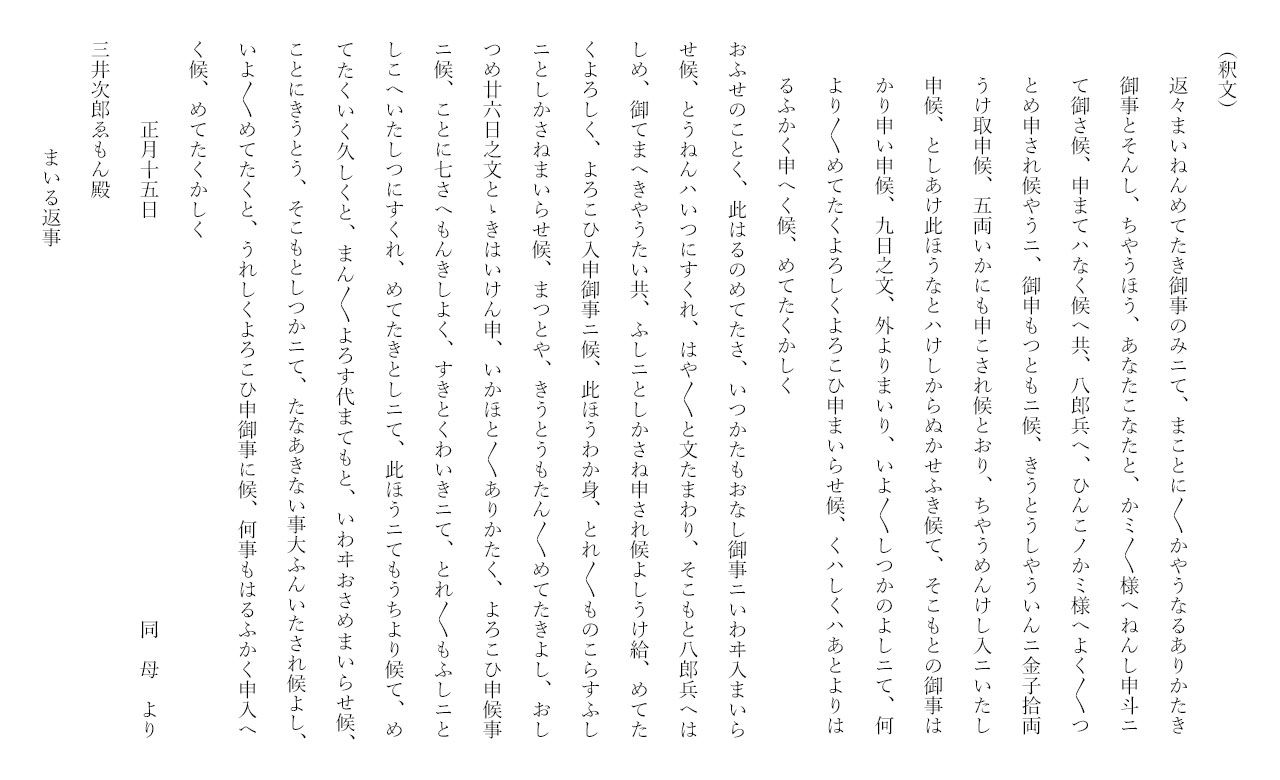 （釈文）
返々まいねんめてたき御事のみニて、まことに〱かやうなるありかたき
御事とそんし、ちやうほう、あなたこなたと、かミ〱様へねんし申斗ニ
て御さ候、申まてハなく候へ共、八郎兵へ、ひんこノかミ様へよく〱つ
とめ申され候やうニ、御申もつともニ候、きうとうしやういんニ金子拾両
うけ取申候、五両いかにも申こされ候とおり、ちやうめんけし入ニいたし
申候、としあけ此ほうなとハけしからぬかせふき候て、そこもとの御事は
かり申い申候、九日之文、外よりまいり、いよ〱しつかのよしニて、何
より〱めてたくよろしくよろこひ申まいらせ候、くハしくハあとよりは
るふかく申へく候、めてたくかしく
おふせのことく、此はるのめてたさ、いつかたもおなし御事ニいわヰ入まいら
せ候、とうねんハいつにすくれ、はや〱と文たまわり、そこもと八郎兵へは
しめ、御てまへきやうたい共、ふしニとしかさね申され候よしうけ給、めてた
くよろしく、よろこひ入申御事ニ候、此ほうわか身、とれ〱ものこらすふし
ニとしかさねまいらせ候、まつとや、きうとうもたん〱めてたきよし、おし
つめ廿六日之文とゝきはいけん申、いかほと〱ありかたく、よろこひ申候事
ニ候、ことに七さへもんきしよく、すきとくわいきニて、とれ〱もふしニと
しこへいたしつにすくれ、めてたきとしニて、此ほうニてもうちより候て、め
てたくいく久しくと、まん〱よろす代まてもと、いわヰおさめまいらせ候、
ことにきうとう、そこもとしつかニて、たなあきない事大ふんいたされ候よし、
いよ〱めてたくと、うれしくよろこひ申御事に候、何事もはるふかく申入へ
く候、めてたくかしく
正月十五日　同　母　より
三井次郎ゑもん殿
まいる返事